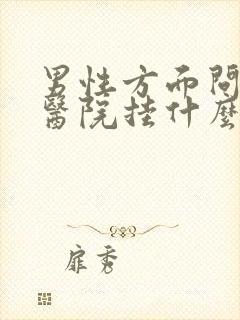 男性方面問
醫院挂什麼
雇秀